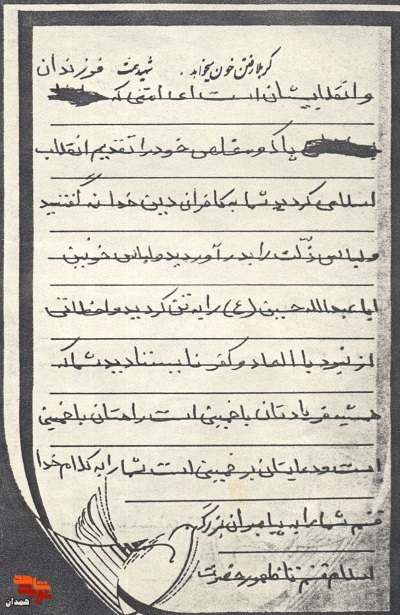 کربلا رفتن خون میخواهد. شهید همت فرزندان
و انقلابیشان است اماماتی که
پاک و مخلص خود را تقدیم انقلاب
اسلامی کردید شما به کافران دین خدا نه گفتید
و لباس ذلّت را بدر آوردید و لباس خونین
ابا عبدالله حسین (ع) را به تن کردید و لحظاتی
از نبرد با الحاد و کفر نایستادید شما که
همیشه فریادتان یا خمینی است راهتان با خمینی
است و دعایتان بر خمینی است شما را به کلام خدا
قسم شما را به پیامبران بزرگ
اسلام قسم تا ظهور حضرت
شاهد
نوید
همدان